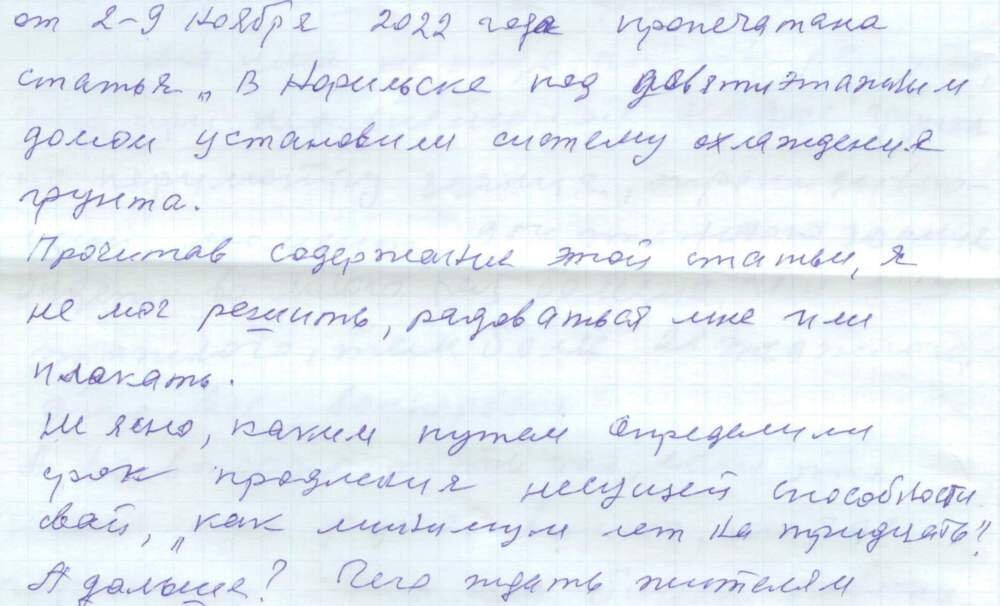 от 2-9 ноября 2022 года пропечатана
статья „В Норильске под девятиэтажным
домом установили систему охлаждения
грунта.
Прочитав содержание этой статьи, я
не мог решить, радоваться мне или
плакать.
Не ясно, каким путем определили
срок продления несущей способности
свай, „как минимум лет на тридцать"?
А дальше? Чего ждать жителям